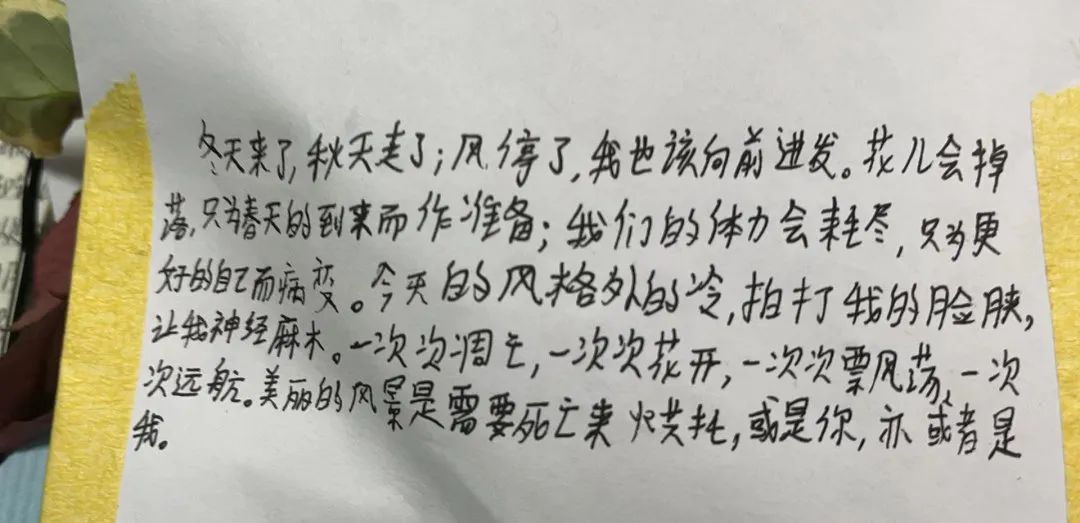 冬天来了,秋天走了;风停了,我也该向前进发。花儿会掉
落,只为春天的到来而作准备;我们的体力会耗尽,只为更
好的自己而病变。今天的风格外的冷,拍打我的脸肤,
让我神经麻木。一次次凋亡,一次次花开,一次次飘荡,一次
次远航。美丽的风景是需要死亡来烘托,或是你,亦或者是
我。